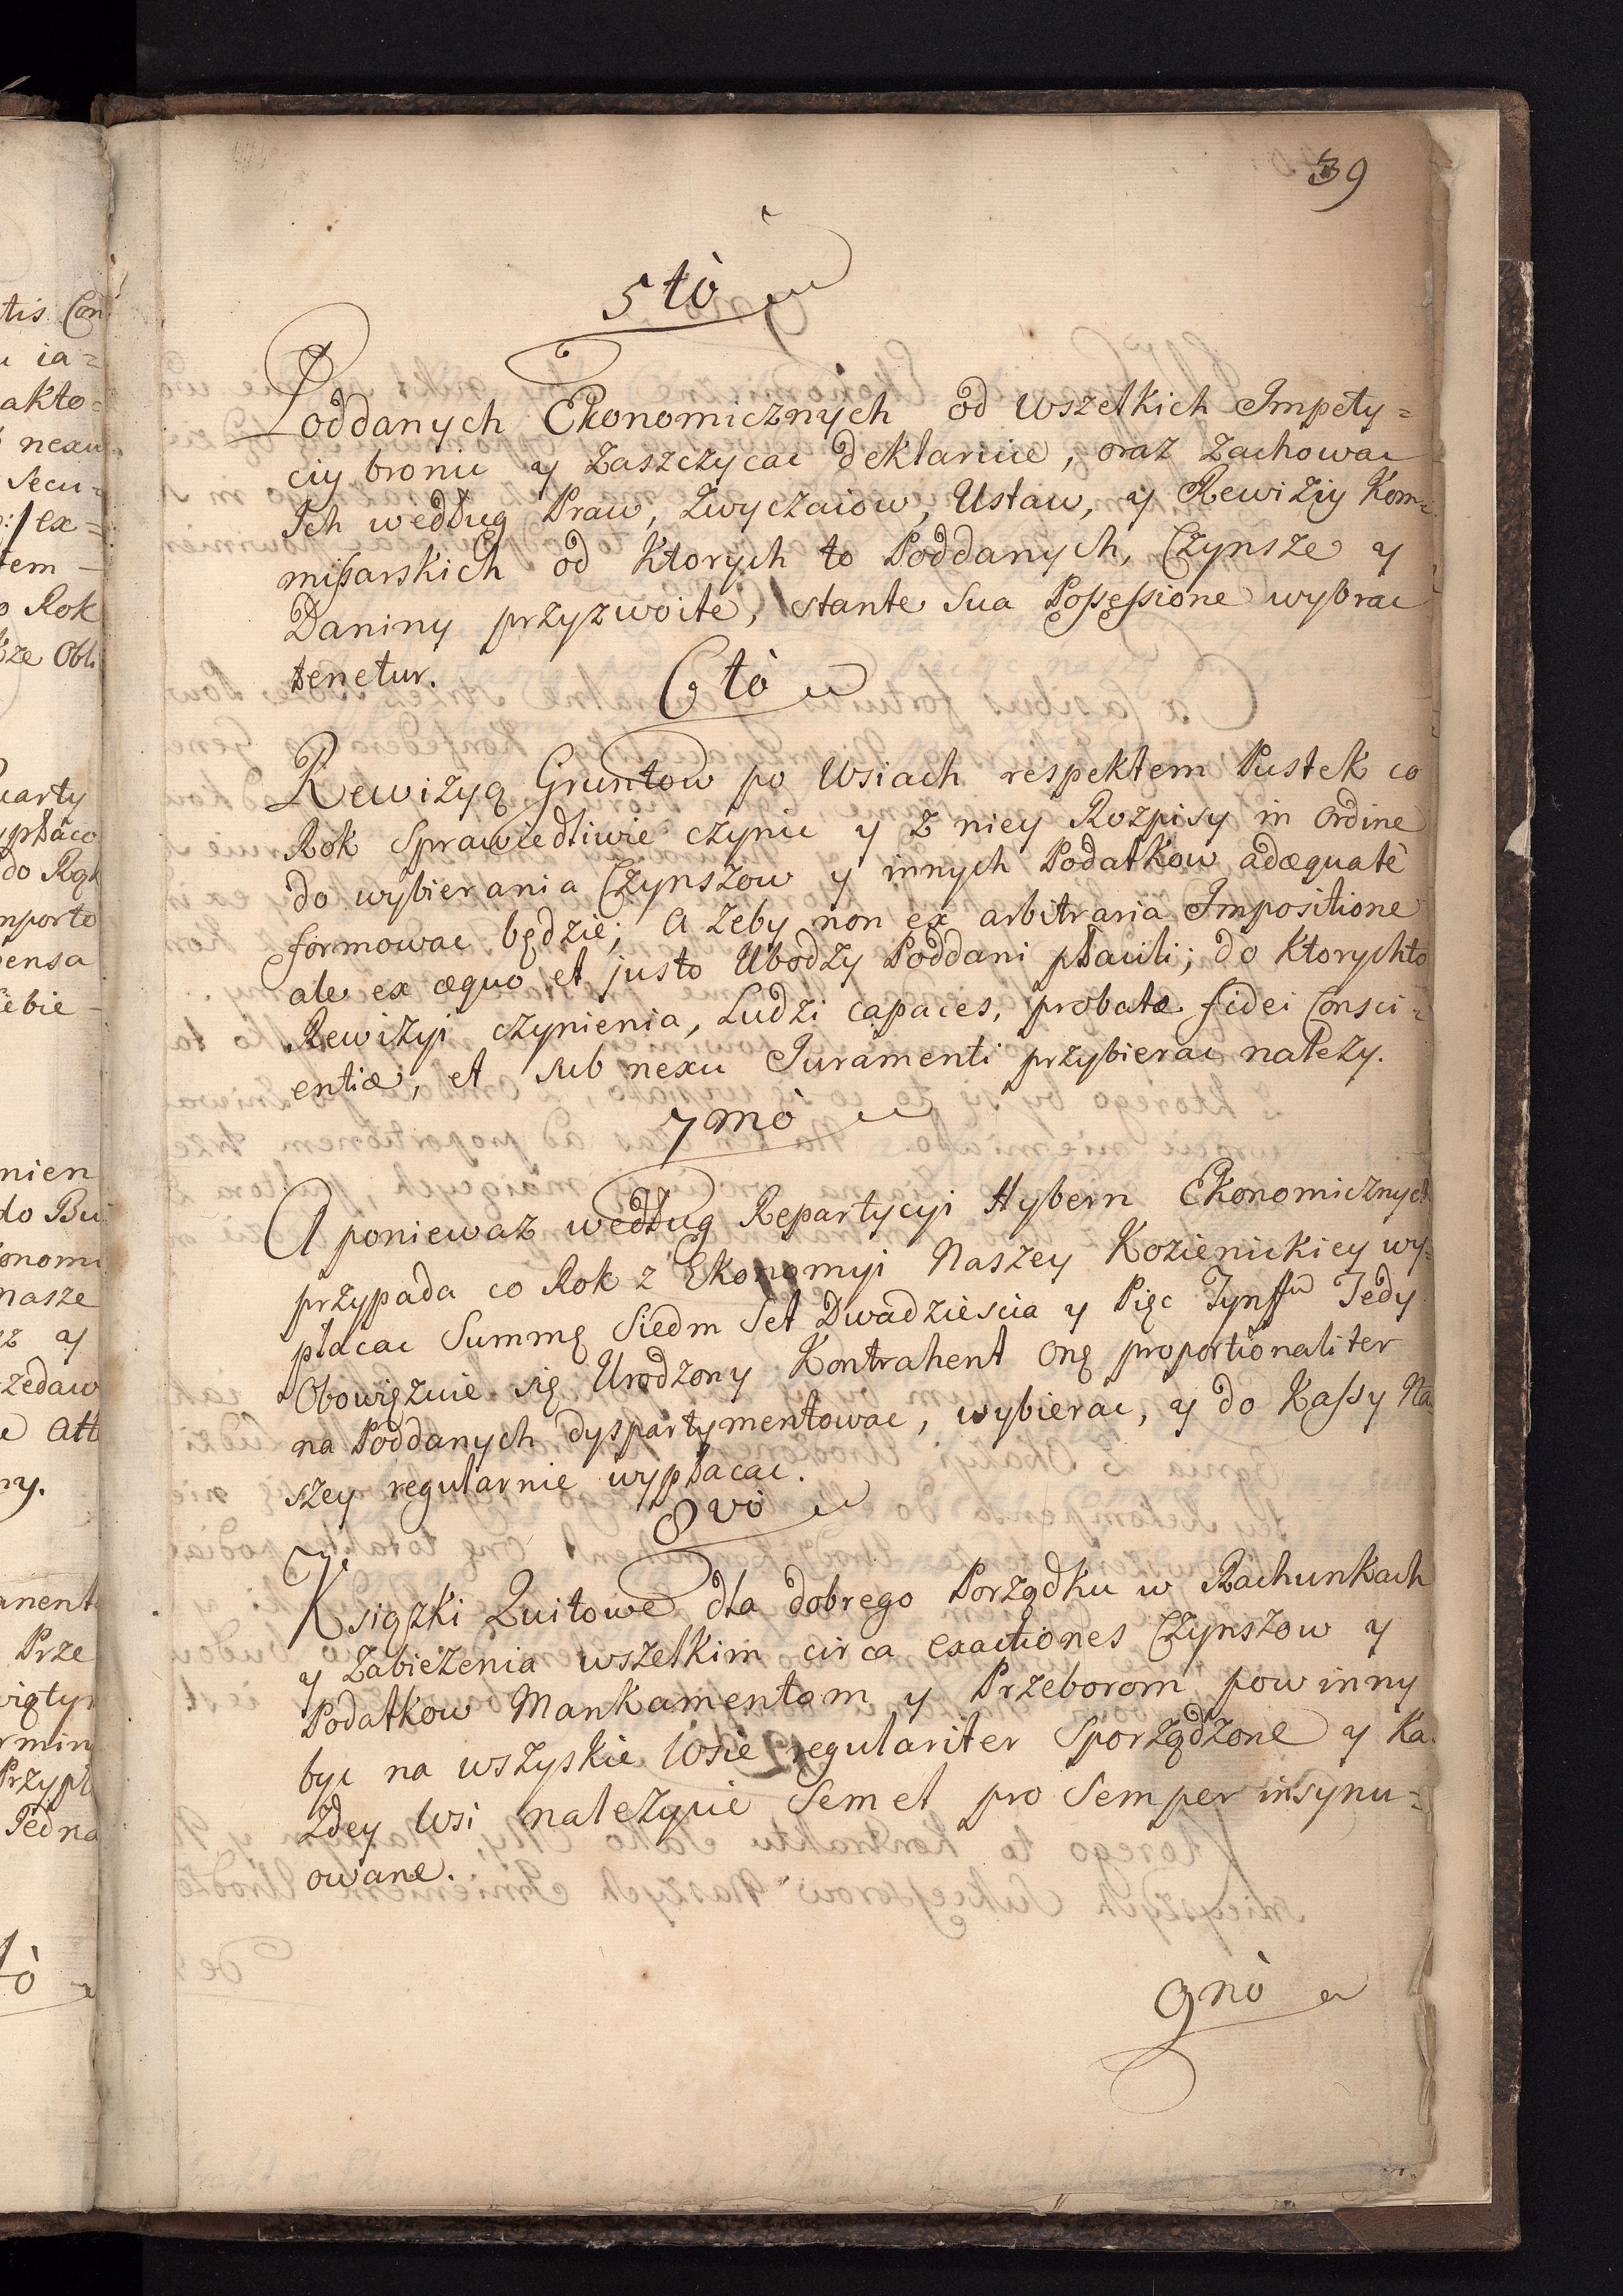 39
5tò
Poddanych Ekonomicznych od wszelkich Impety=
ciy bronic y zaszczycac deklaruie, oraz zachowac
Ich według Praw, Zwyczaiow, Ustaw, y Rewiziy Kom=
missarskich od Ktorych to Poddanych, Czynsze y
Daniny przyzwoite, stante sua Possessione wybrac
tenetur.
6tò
Rewizyą Gruntow po Wsiach respektem Pustek co
Rok sprawiedliwie czynic y z niey Rozpisy in ordine
do wybierania Czynszow y innych Podatkow adæquatè
formowac będzie; A zeby non ex arbitraria Impositione
ale ex æquo et justo Ubodzy Poddani płacili; do Ktorychto
Rewizyi czynienia, Ludzi capaces, probatæ fidei Consci=
entiæ, et sub nexu Juramenti przybierac nalezy.
7mò
A poniewaz według Repartycyi Hybern Ekonomicznych
przypada co Rok z Ekonomyi Naszey Kozienickiey wy=
płacac Summę Siedm Set Dwadziescia y Pięc Tynffw Tedy
Obowięzuie się Urodzony Kontrahent onę proportionaliter
na Poddanych dyspartymentowac, wybierac, y do Kassy Na=
szey regularnie wypłacac.
8vò
Ksiązki Quitowe dla dobrego Porządku w Rachunkach
y Zabiezenia wszelkim circa exactiones Czynszow y
Podatkow Mankamentom y Przeborom powinny
byc na wszyskie Wsie regulariter sporządzone y Ka=
zdey Wsi nalezycie semet pro semper insynu=
owane.
9nò
tis Con
u ia=
akto=
neau
Secu=
ex=
tem
Rok
ze Obli
uarty
ypłaco
do Rąk
mporto
pensa
iebie
nien
do Bu
konomi
nasze
z y
zedaw
Att
ny.
anent
Prze
wiątyn
rmin
Przypł
Jedna
tò